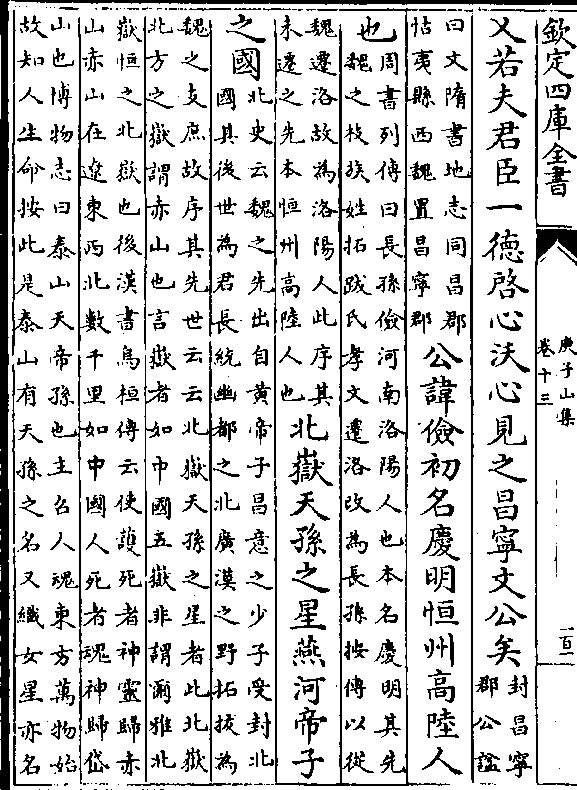 欽定四庫全書
庚子山集
卷十三
乂若夫君臣一德啓心沃心見之昌寧文公矣
封昌寧
郡公諡
曰文隋書地志同昌郡
怗夷縣西魏置昌寧郡
公諱儉初名慶明恒州高陸人
也
周書列傳曰長孫儉河南洛陽人也本名慶明其先
魏之枝族姓拓跋氏孝文遷洛改為長孫按傳以從
魏遷洛故為洛陽人此序其
未遷之先本恒州高陸人也
北嶽天孫之星燕河帝子
之國
北史云魏之先出自黄帝子昌意之少子受封北
國其後世為君長統幽都之北廣漠之野拓拔為
魏之支庶故序其先世云云北嶽天孫之星者此北嶽
北方之嶽謂赤山也言嶽者如中國五嶽非謂爾雅北
嶽恒之北嶽也後漢書烏桓傳云使護死者神靈歸赤
山赤山在遼東西北數千里如中國人死者魂神歸岱
山也博物志曰泰山天帝孫也主召人魂東方萬物始
故知人生命按此是泰山有天孫之名又織女星亦名